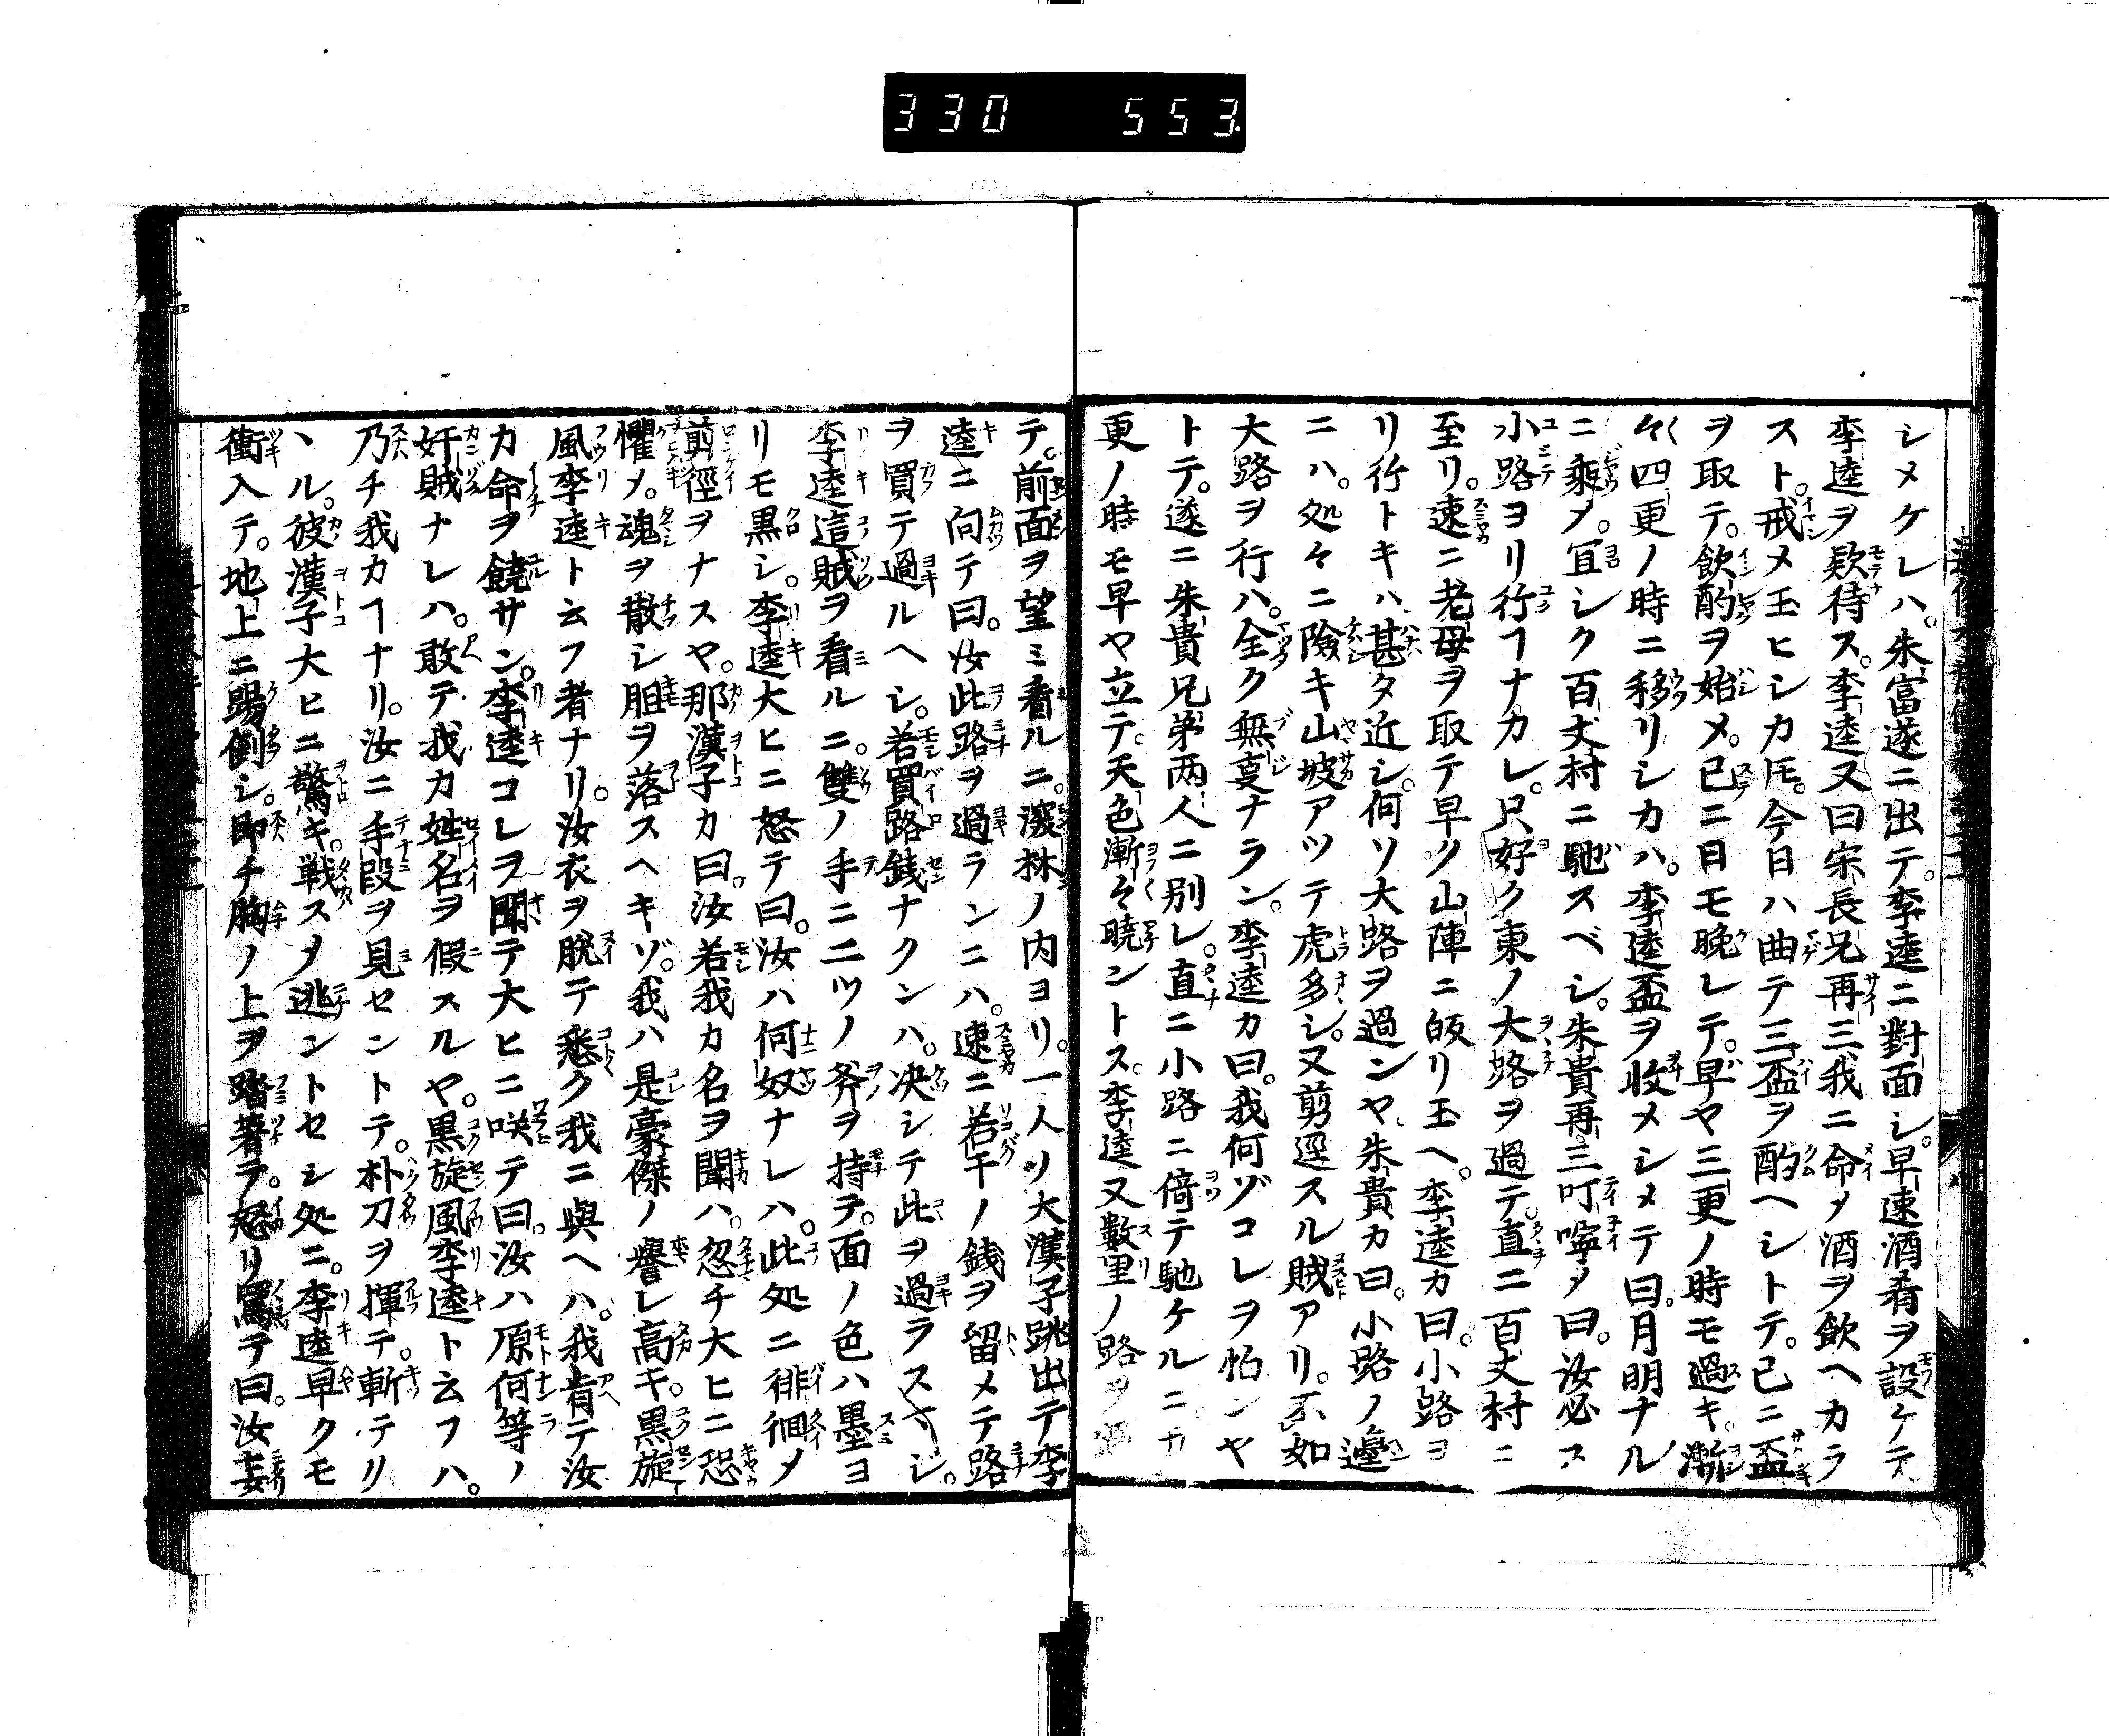 330 553
シメケレハ。朱富遂ニ出テ。李逵ニ對面シ。早速酒肴ヲ設ケテ
李逵ヲ欵待ス。李逵又曰宋長兄再三我ニ命メ酒ヲ飲ヘカラ
スト。戒メ玉ヒシカ𪜈。今日ハ曲テ三盃ヲ酌ヘシトテ。已ニ盃
ヲ取テ。飲酌ヲ始メ。已ニ日モ晩レテ。早ヤ三更ノ時モ過キ。漸
々四更ノ時ニ移リシカハ。李逵盃ヲ收メシメテ曰。月明ナル
ニ乘メ。宜シク百丈村ニ馳スベシ。朱貴再三叮嚀メ曰。汝必ス
小路ヨリ行ヿナカレ。只好ク東ノ大路ヲ過テ。直ニ百丈村ニ
至リ。速ニ老母ヲ取テ早ク山陣ニ皈リ玉ヘ。李逵カ曰。小路ヨ
リ行トキハ甚タ近シ。何ソ大路ヲ過ンヤ。朱貴カ曰。小路ノ邉
ニハ。処々ニ險キ山坡アツテ虎多シ。又剪逕スル賊アリ。不如
大路ヲ行ハ。全ク無叓ナラン。李逵カ曰。我何ゾコレヲ怕ンヤ
トテ。遂ニ朱貴兄弟兩人ニ別レ。直ニ小路ニ倚テ馳ケルニ
更ノ時モ早ヤ立テ。天色漸々曉ントス。李逵又數里ノ路ヲ
テ。前面ヲ望ミ看ルニ。深林ノ内ヨリ。一人ノ大漢子跳出テ李
逵ニ向テ曰。汝此路ヲ過ランニハ。速ニ若干ノ錢ヲ留メテ路
ヲ買テ過ルヘシ。若買路錢ナクンハ。决シテ此ヲ過ラスマジ。
李逵這賊ヲ看ルニ。雙ノ手ニ二ツノ斧ヲ持テ。面ノ色ハ墨ヨ
リモ黒シ。李逵大ヒニ怒テ曰。汝ハ何奴ナレハ。此処ニ徘徊メ
剪徑ヲナスヤ。那漢子カ曰。汝若我カ名ヲ聞ハ。忽チ大ヒニ恐
懼メ。魂ヲ散シ胆ヲ落スヘキゾ。我ハ是豪傑ノ譽レ高キ。黒旋
風李逵ト云フ者ナリ。汝衣ヲ脱テ悉ク我ニ與ヘハ。我肯テ汝
カ命ヲ饒サン。李逵コレヲ聞テ大ヒニ咲テ曰。汝ハ原何等ノ
奸賊ナレハ。敢テ我カ姓名ヲ假スルヤ。黒旋風李逵ト云フハ。
乃チ我カヿナリ。汝ニ手段ヲ見セントテ。朴刀ヲ揮テ。斬テリ
ヽル。彼漢子大ヒニ驚キ。戦スメ逃ントセシ処ニ。李逵早クモ
衝入テ。地上ニ踢倒シ。即チ胸ノ上ヲ踏著テ。怒リ罵テ曰。汝妄